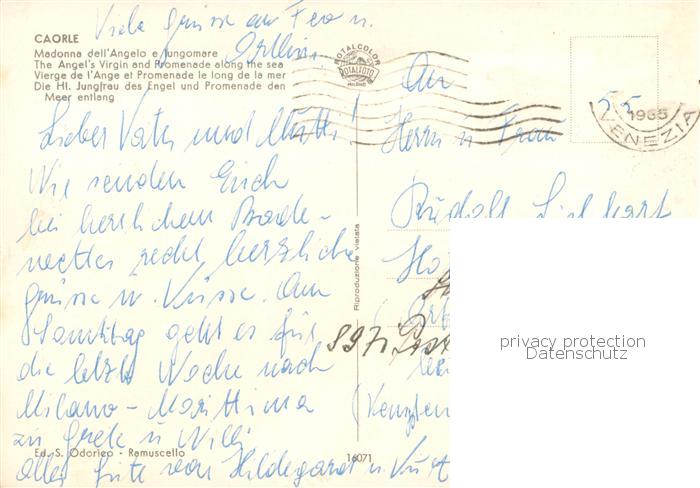 Viele Grüsse an Fea u.
CAORLE
Madonna dell'Angelo e lungomare
The Angel's Virgin and Promenade along the sea
Vierge de l'Ange et Promenade le long de la mer
Die Hl. Jungfrau des Engel und Promenade den
Meer entlang
ROTALCOLOR
ROTALFOTO
MILANO
1965
VENEZIA
An
Herrn u Frau
Rudolf
Lieber Vater und Mutti!
Wir senden Euch
bei herrlichem Bade-
wetter recht herzliche
Grüsse u. Küsse. Am
Samstag geht es für
die letzte Woche nach
Milano-Marittima
zu Gretl u Willi
alles Gute von Hildegard u. Kurt
8971
Riproduzione vietata
Ed. S. Odorico - Ramuscello
16071
privacy protection
Datenschutz